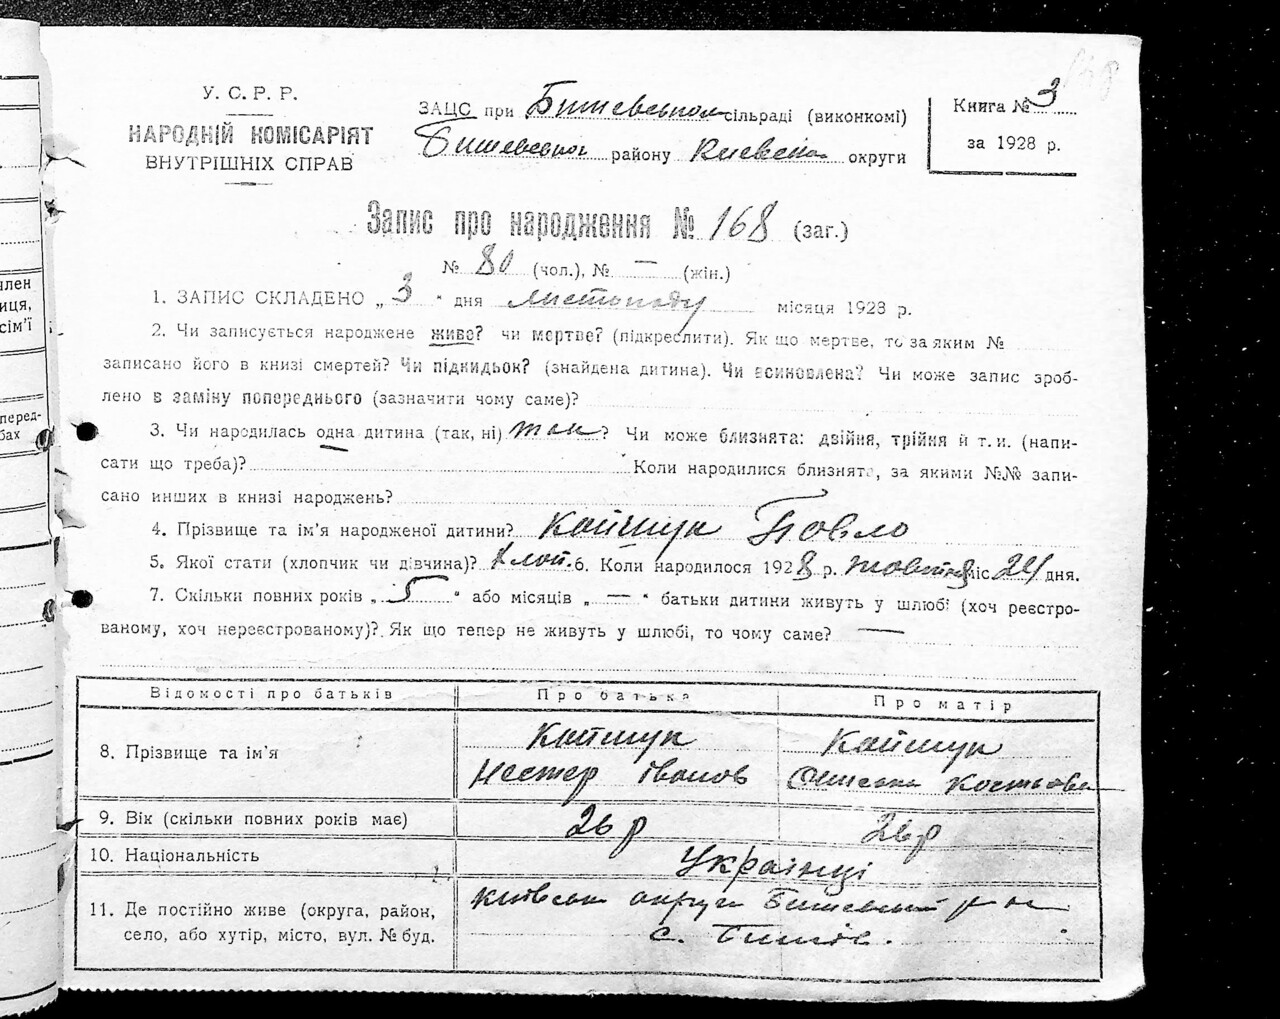 У. С. Р. Р.
НАРОДНІЙ КОМІСАРІЯТ
ВНУТРІШНІХ СПРАВ
ЗАЦС при Бишевському сільраді (виконкомі)
Бишевського району Київської округи
Книга № 3
за 1928 р.
Запис про народження № 168 (заг.)
№ 80 (чол.), № — (жін.)
1. ЗАПИС СКЛАДЕНО „ 3 " дня листопаду місяця 1928 р.
2. Чи записується народжене живе? чи мертве? (підкреслити). Як що мертве, то за яким №
записано його в книзі смертей? Чи підкидьок? (знайдена дитина). Чи всиновлена? Чи може запис зроб-
лено в заміну попереднього (зазначити чому саме)?
3. Чи народилась одна дитина (так, ні) так? Чи може близнята: двійня, трійня й т. и. (напи-
сати що треба)? Коли народилися близнята, за якими №№ запи-
сано инших в книзі народжень?
4. Прізвище та ім'я народженої дитини? Койшук Повло
5. Якої стати (хлопчик чи дівчина)? Хлоп. 6. Коли народилося 1928 р. жовтня міс. 24 дня.
7. Скільки повних років „ 5 " або місяців „ — " батьки дитини живуть у шлюбі (хоч реєстро-
ваному, хоч нереєстрованому)? Як що тепер не живуть у шлюбі, то чому саме? —
Відомості про батьків Про батька Про матір
8. Прізвище та ім'я Койшук Койшук
Нестер Іванов Костьова
9. Вік (скільки повних років має) 26 р 26 р
10. Національність Українці
11. Де постійно живе (округа, район, Київська округа Бишевський р-н
село, або хутір, місто, вул. № буд. с. Бишів.
член
иця,
сім'ї
перед-
бах